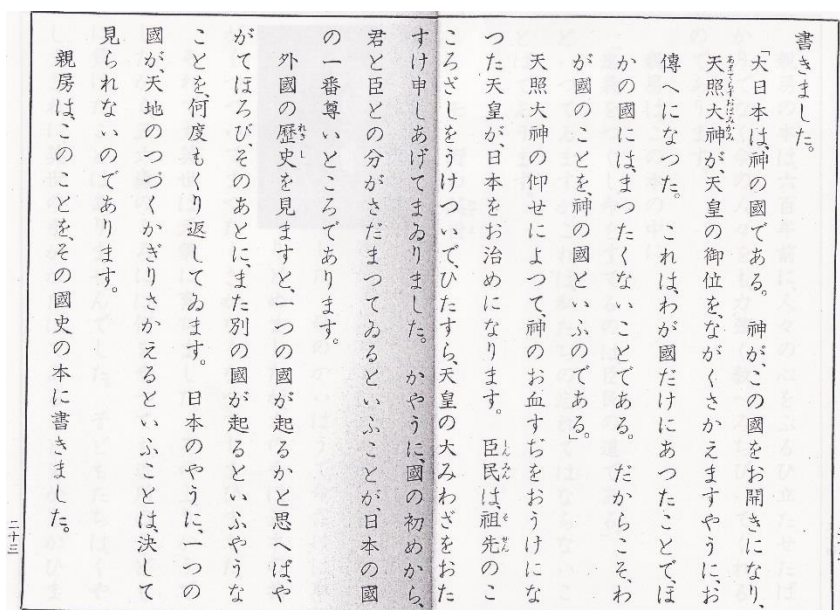 書きました。
「大日本は、神の國である。　神が、この國をお開きになり、
天照大神が、天皇の御位を、ながくさかえますやうに、お
傳へになつた。　これは、わが國だけにあつたことで、ほ
かの國には、まつたくないことである。　だからこそ、わ
が國のことを、神の國といふのである。」
天照大神の仰せによつて、神のお血すぢをおうけにな
つた天皇が、日本をお治めになります。　臣民は、祖先のこ
ころざしをうけついで、ひたすら、天皇の大みわざをおた
すけ申しあげてまゐりました。　かやうに、國の初めから、
君と臣との分がさだまつてゐるといふことが、日本の國
の一番尊いところであります。
外國の歷史を見ますと、一つの國が起るかと思へば、や
がてほろび、そのあとに、また別の國が起るといふやうな
ことを、何度もくり返してゐます。　日本のやうに、一つの
國が天地のつづくかぎりさかえるといふことは、決して
見られないのであります。
親房は、このことを、その國史の本に書きました。
二十三